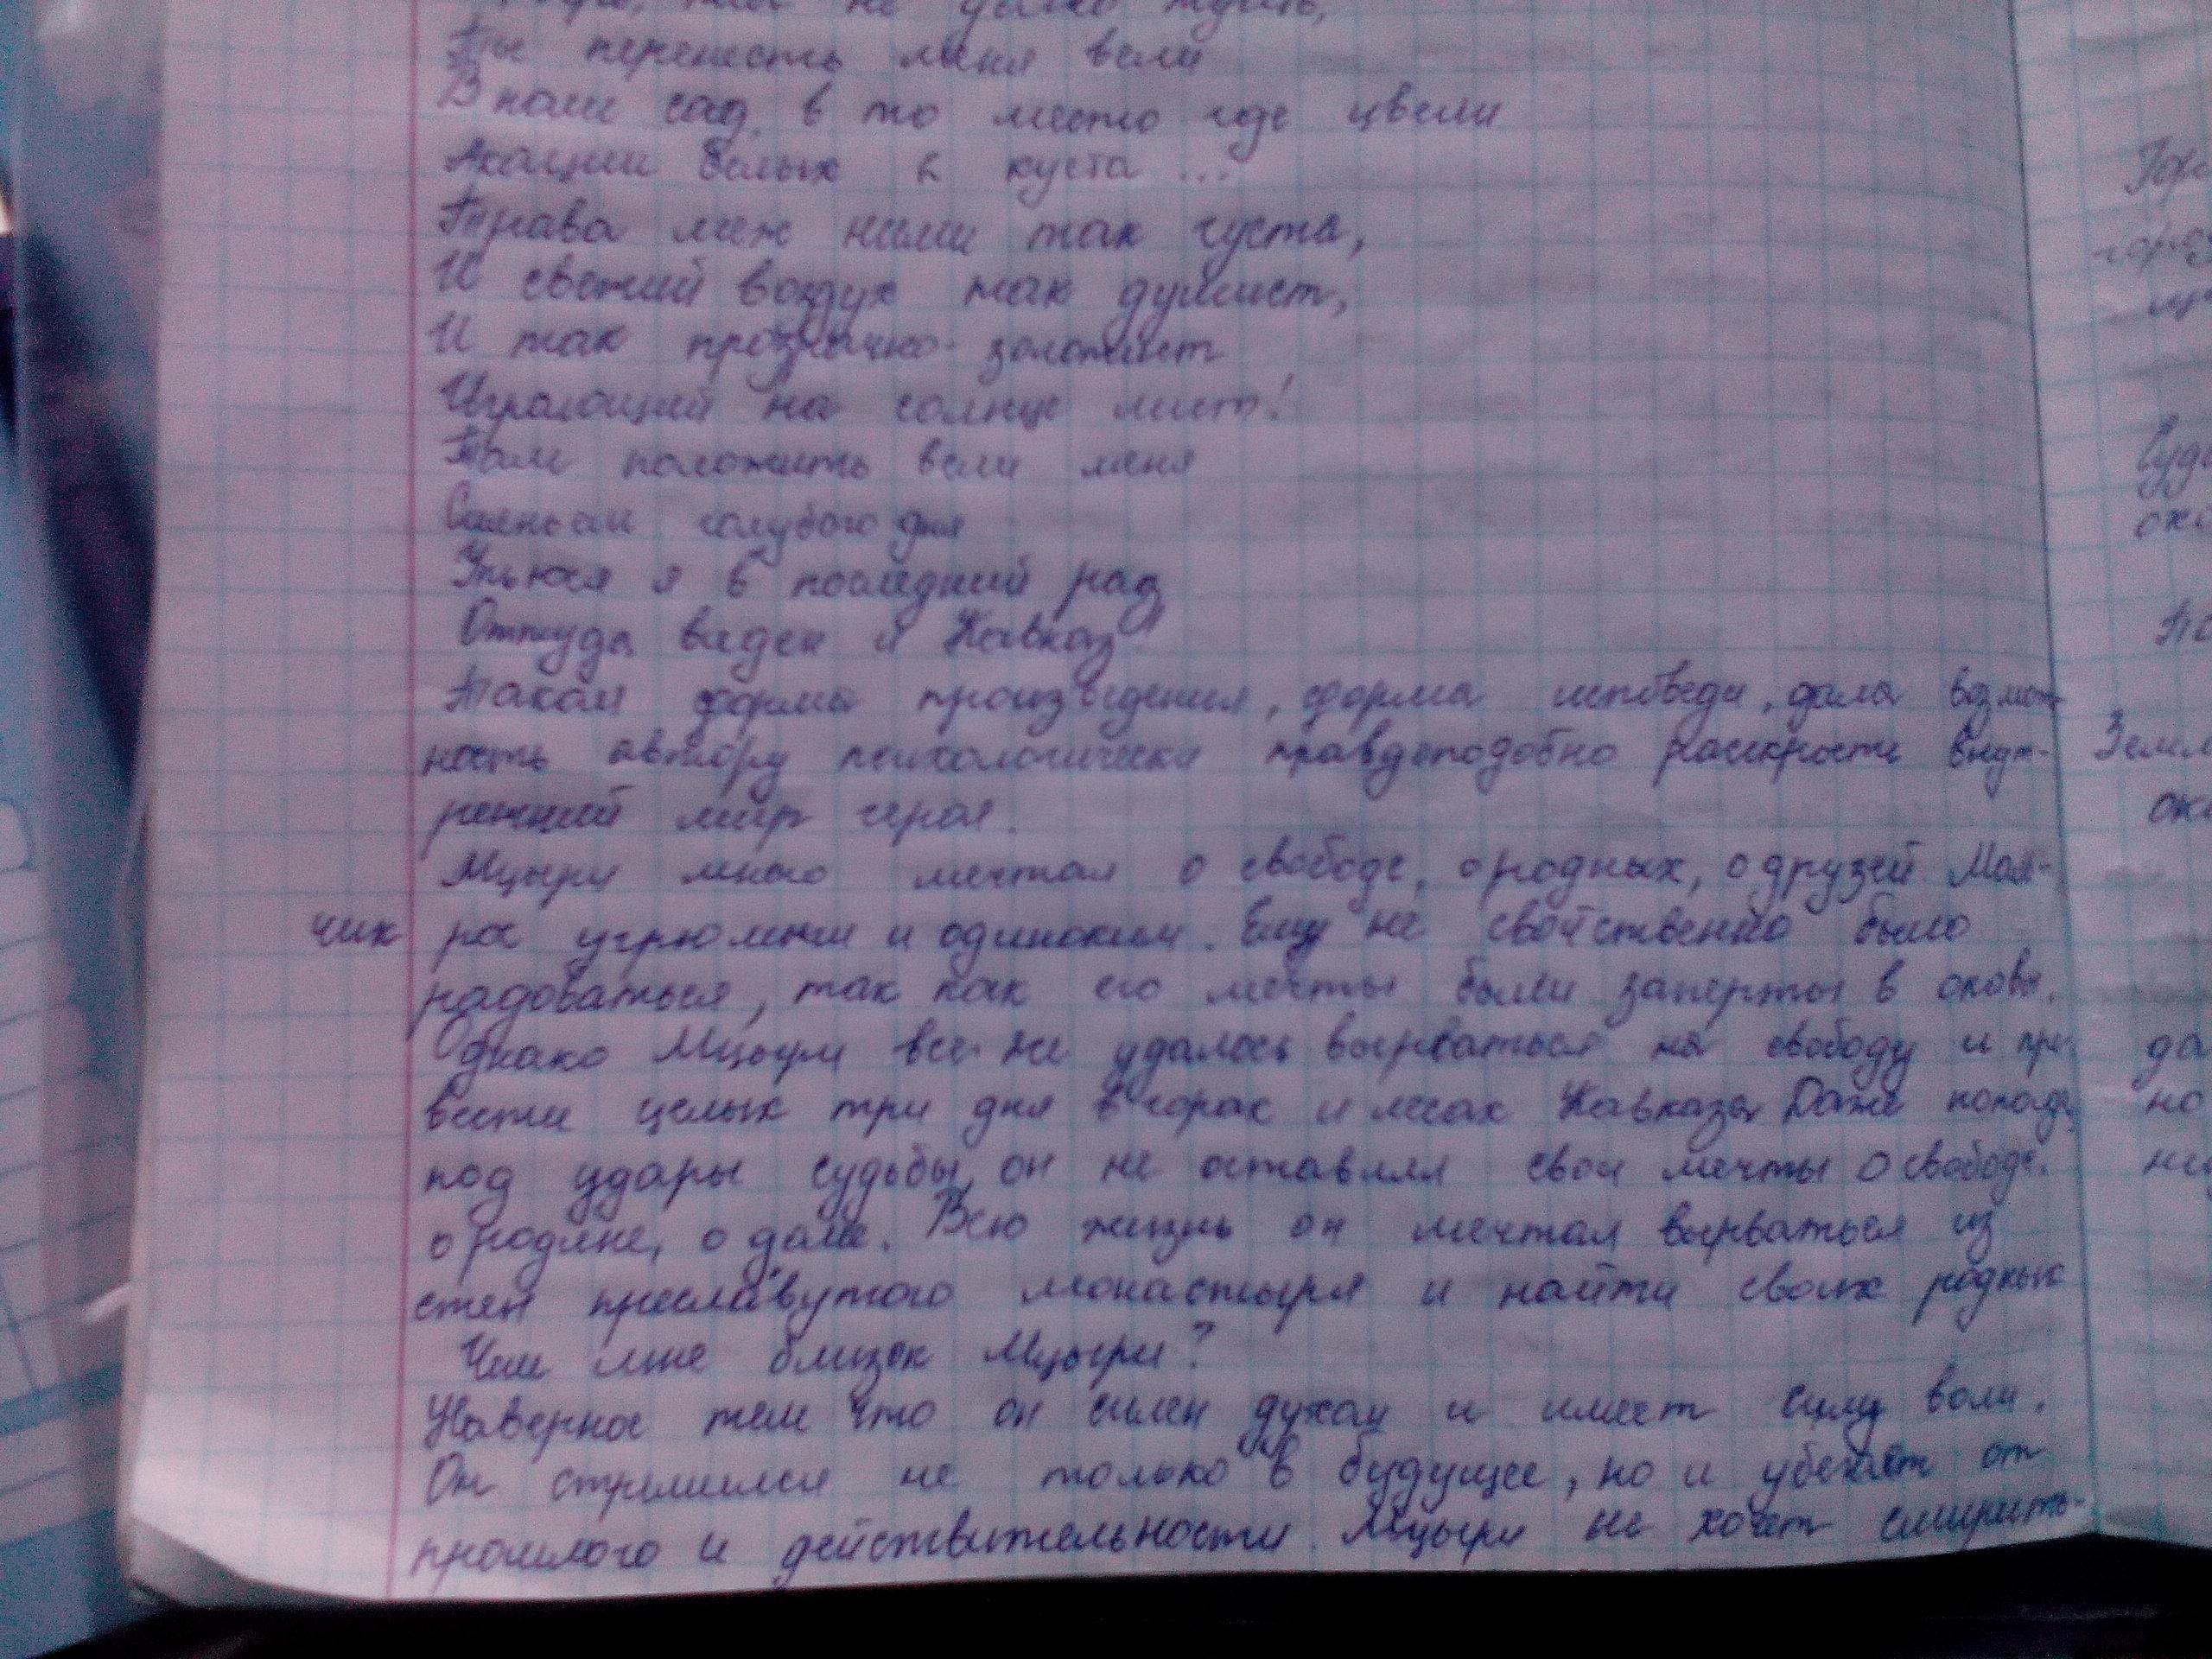 Ты перенесть меня вели
В наш сад, в то место где цвели
Акаций белых 2 куста ...
Трава меж ними так густа,
И свежий воздух так душист,
И так прозрачно-золотист
Играющий на солнце лист!
Там положить вели меня
Сияньем голубого дня
Упьюся я в последний раз
Оттуда виден и Кавказ!
Такая форма произведения, форма исповеди, дала возмож-
ность автору психологически правдеподобно раскрость внут-
ренний мир героя.
Мцыри много мечтал о свободе, о родных, о друзей. Маль-
чик рос угрюмым и одиноким. Ему не свойственно было
радоваться, так как его мечты были заперты в оковы.
Однако Мцыри все же удалось вырваться на свободу и про-
вести целых три дня в горах и лесах Кавказа. Даже попадя
под удары судьбы, он не оставлял свои мечты о свободе.
о родине, о доме. Всю жизнь он мечтал вырваться из
стен преславутого монастыря и найти своих родных
Чем мне близок Мцыри?
Наверное тем что он силен духом и имеет силу воли.
Он стремился не только в будущее, но и убегает от
прошлого и действительности. Мцыри не хочет смирить-